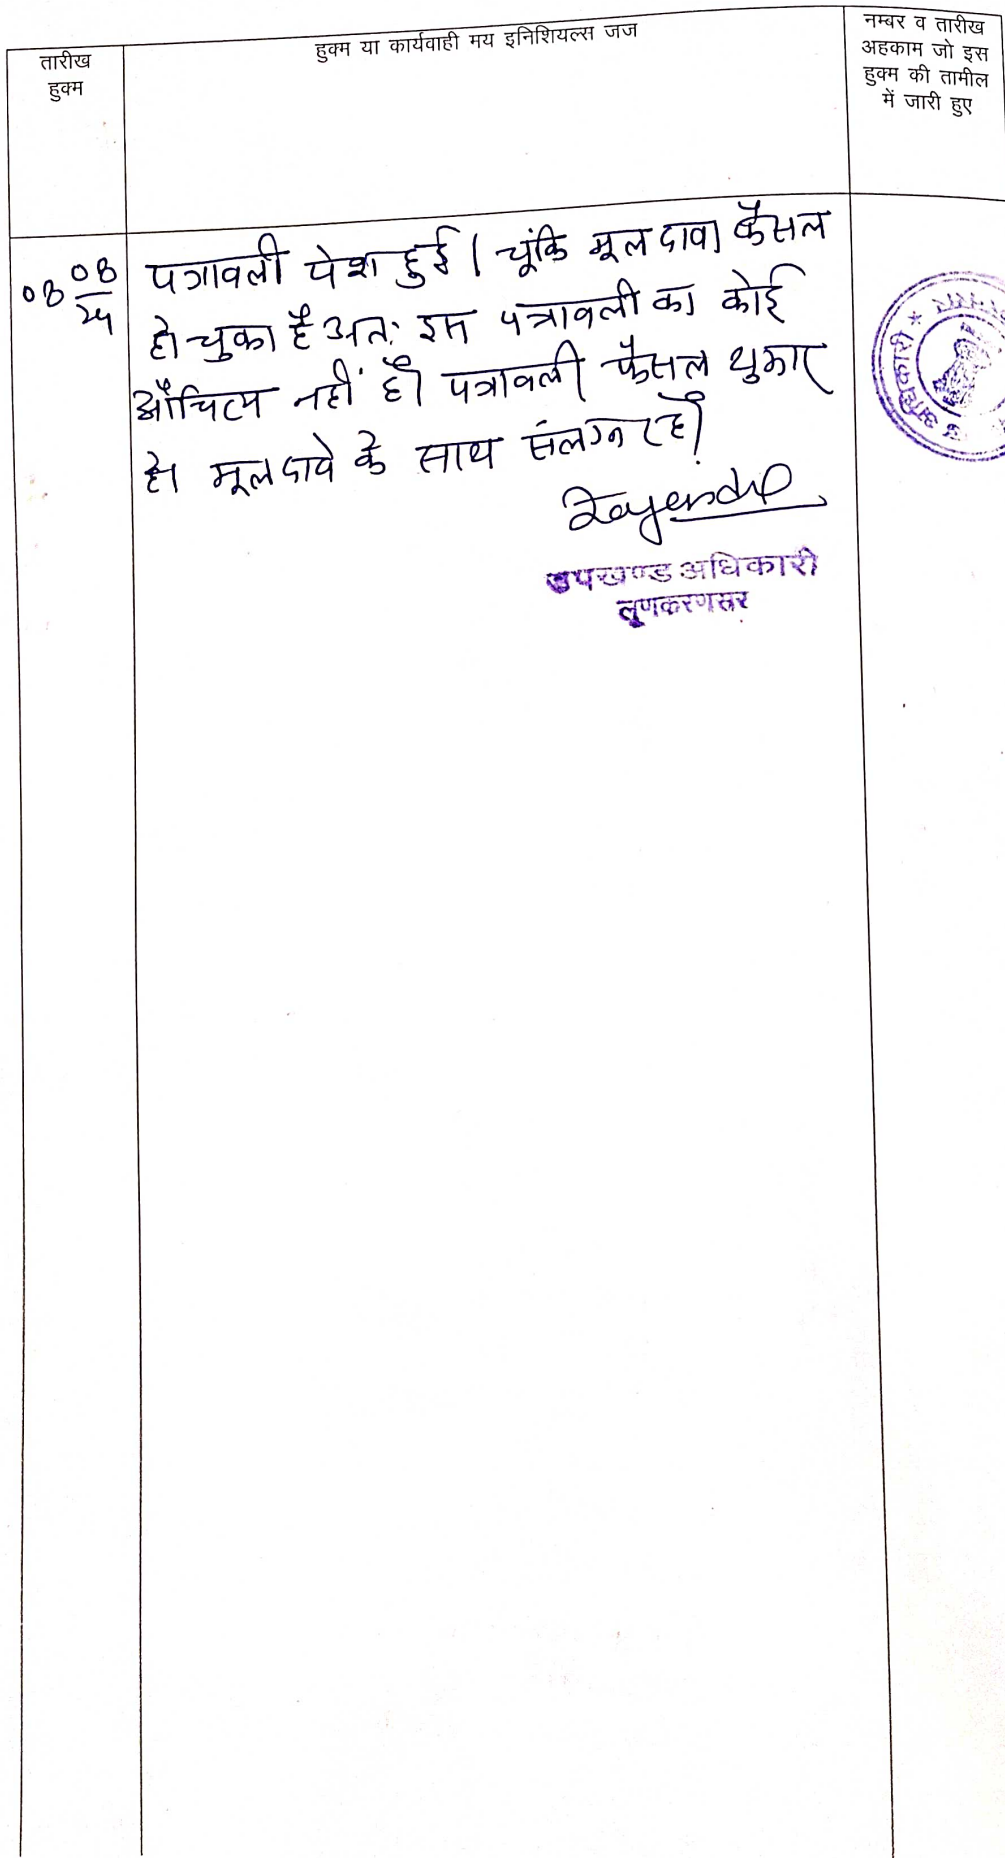 तारीख
हुक्म
हुक्म या कार्यवाही मय इनिशियल्स जज
नम्बर व तारीख
अहकाम जो इस
हुक्म की तामील
में जारी हुए
08 08
24
पत्रावली पेश हुई। चूंकि मूल दावा फैसल
हो चुका है अतः इस पत्रावली का कोई
औचित्य नहीं है। पत्रावली फैसल शुमार
हो मूल दावे के साथ संलग्न रहे।
उपखण्ड अधिकारी
लूणकरणसर
अधिकारी *